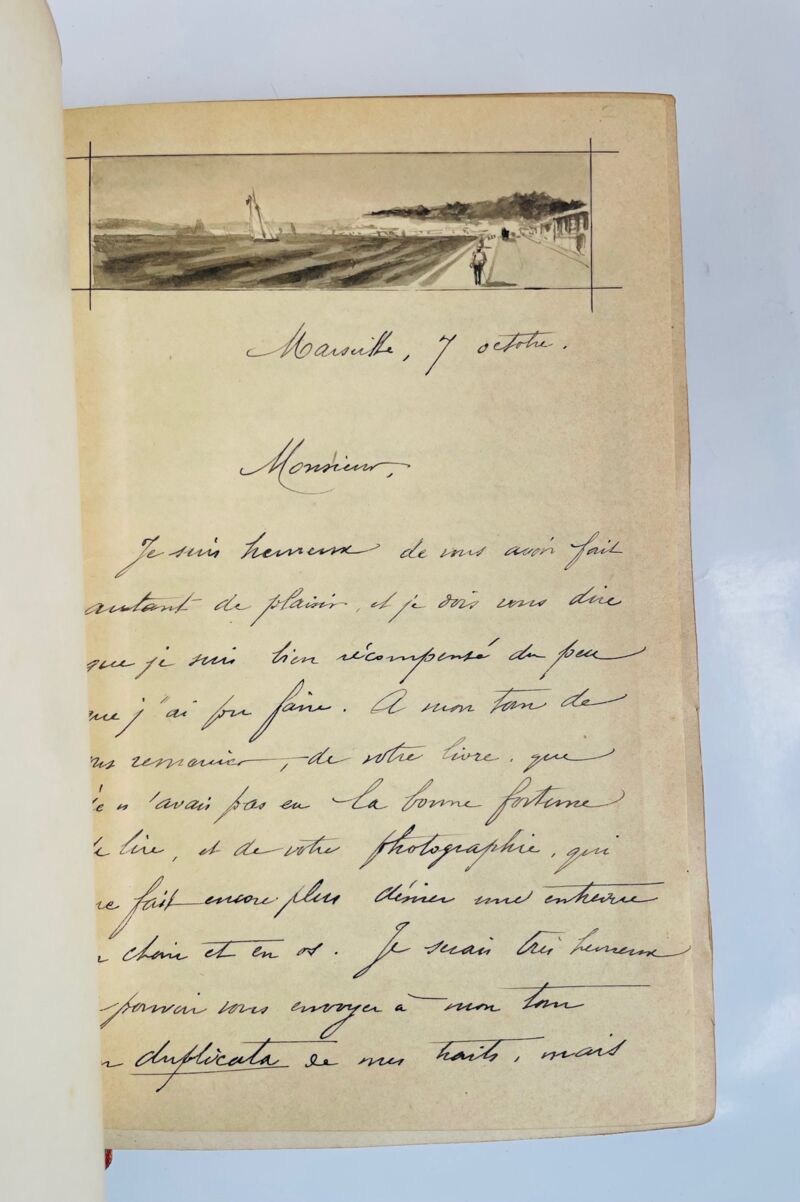 2
Marseille, 7 octobre.
Monsieur,
Je suis heureux de vous avoir fait
autant de plaisir, et je dois vous dire
que je suis bien récompensé du peu
que j'ai pu faire. A mon tour de
us remercier, de votre livre, que
je n'avais pas eu la bonne fortune
de lire, et de votre photographie, qui
me fait encore plus désirer une entrevue
n chair et en os. Je serais très heureux
pouvoir vous envoyer à mon tour
n duplicata de mes traits, mais